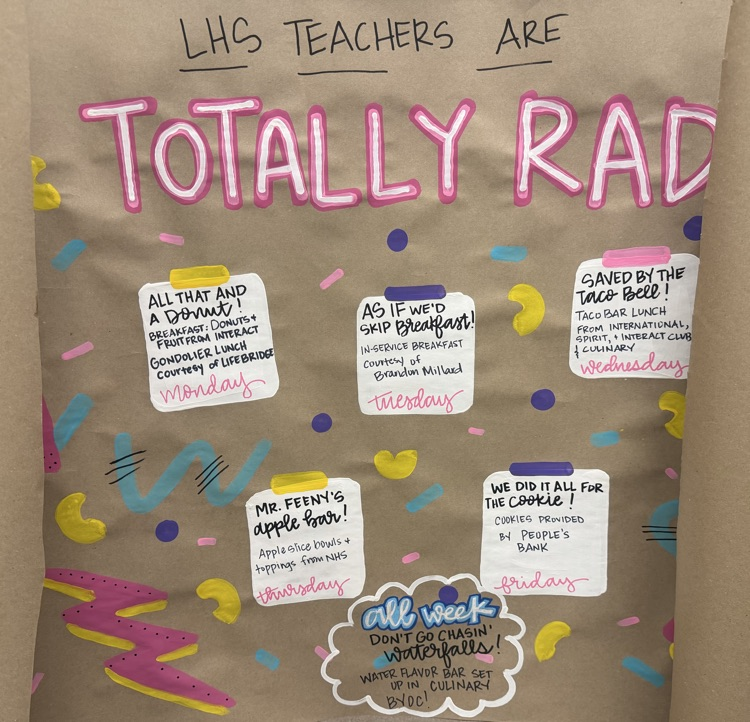 LHS TEACHERS ARE
TOTALLY RAD
ALL THAT AND
A Donut!
BREAKFAST: DONUTS +
FRUIT FROM INTERACT
GONDOLIER LUNCH
courtesy of LIFEBRIDGE
monday
AS IF WE'D
SKIP Breakfast!
IN-SERVICE BREAKFAST
courtesy of
Brandon Millard
tuesday
SAVED BY THE
Taco Bell!
TACO BAR LUNCH
FROM INTERNATIONAL,
SPIRIT, + INTERACT CLUB
+ CULINARY
wednesday
MR. FEENY'S
apple bar!
Apple slice bowls +
toppings from NHS
thursday
WE DID IT ALL FOR
THE Cookie!
COOKIES PROVIDED
BY PEOPLE'S
BANK
friday
all week
DON'T GO CHASIN'
waterfalls!
WATER FLAVOR BAR SET
UP IN CULINARY
BYOC!